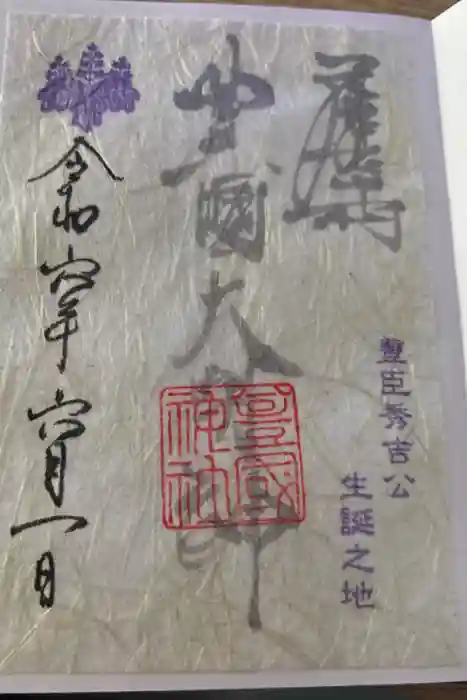 豊臣秀吉公
生誕之地
豊國大明神
豊國
神社
令和六年六月一日